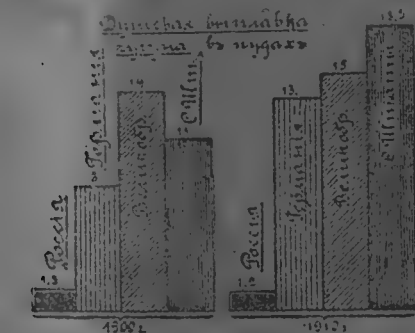 Душевая выплавка
чугуна въ пудахъ
Россія
Германія
14
Великобр.
С. Шт.
Россія
13.
Германія
15
Великобр.
18,5
С. Штаты
1900 г.